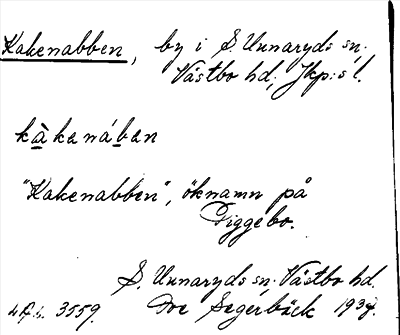 Kakenabben, by i S. Unnaryds sn.
Västbo hd, Jkp:s l.
kàkenáben
"Kakenabben", öknamn på
Diggebo.
S. Unnaryds sn, Västbo hd.
3559. Ivre Segerbäck 1934.